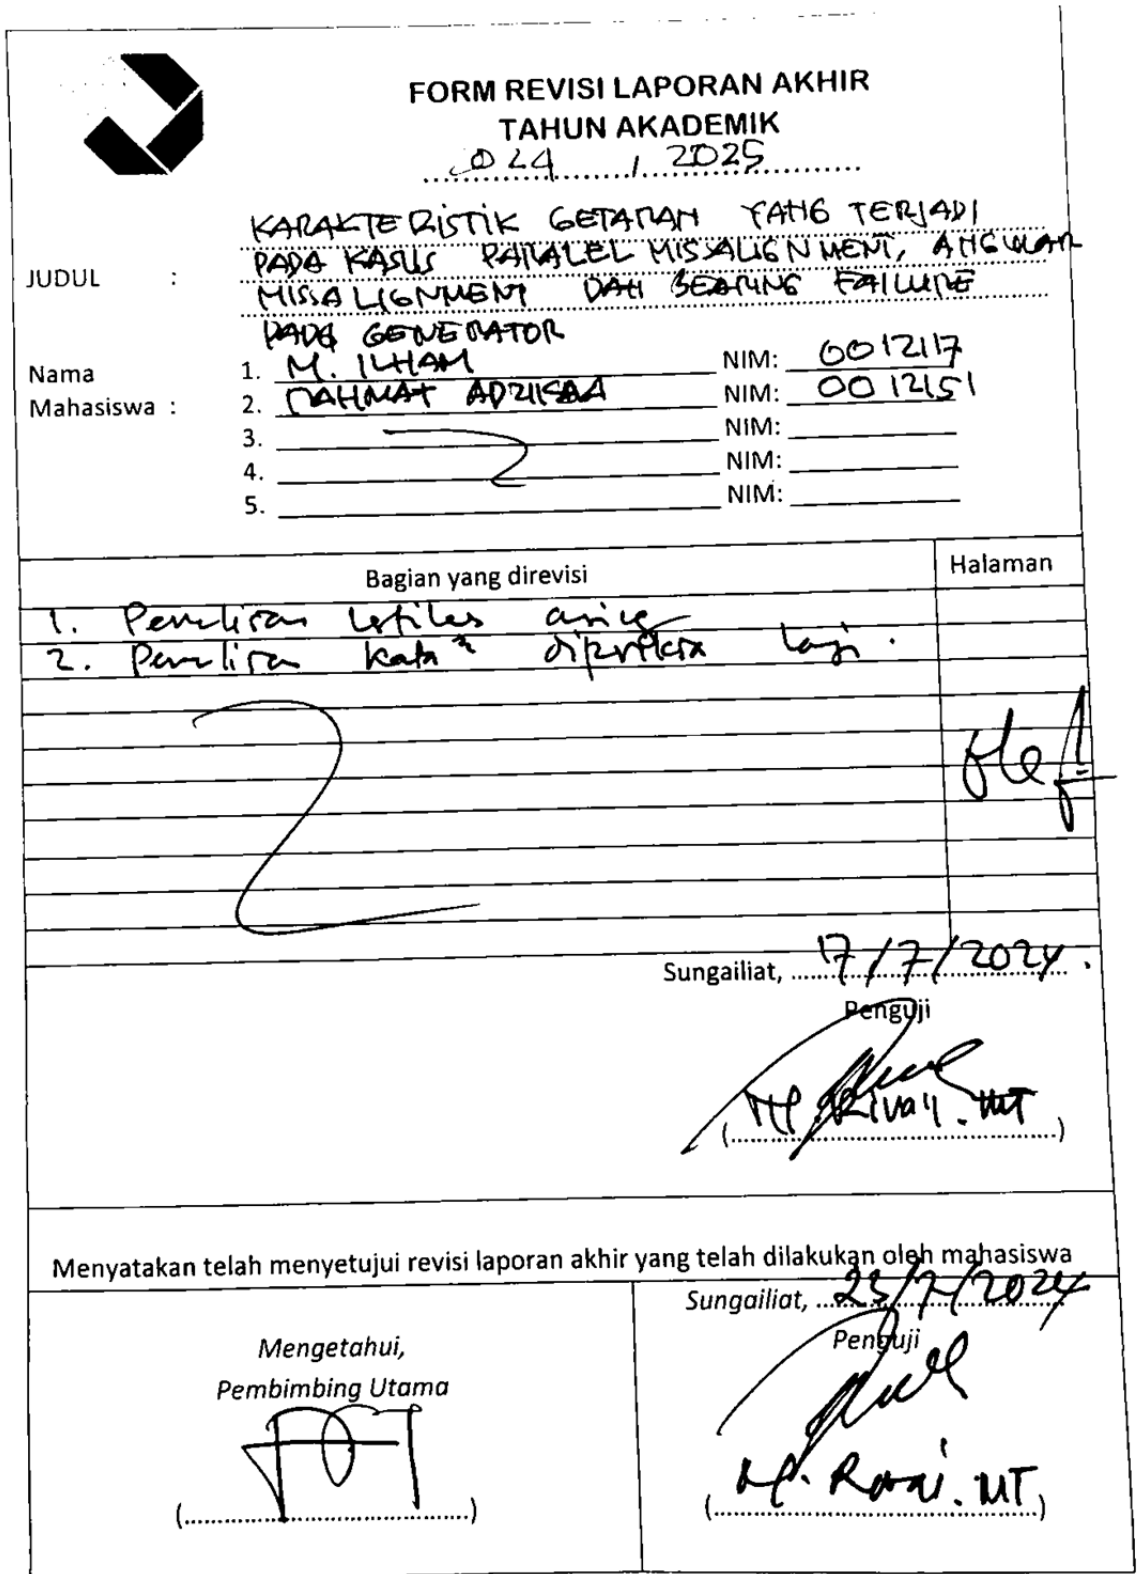 FORM REVISI LAPORAN AKHIR
TAHUN AKADEMIK
2024 / 2025
JUDUL : KARAKTERISTIK GETARAN YANG TERJADI
PADA KASUS PARALEL MISSALIGNMENT, ANGULAR
MISSALIGNMENT DAN BEARING FAILURE
PADA GENERATOR
Nama
Mahasiswa :
1. M. ILHAM NIM: 0012117
2. RAHMAT ADZIKSAA NIM: 0012151
3. NIM:
4. NIM:
5. NIM:
Bagian yang direvisi Halaman
1. Penulisan istilah asing
2. Penulisan kata² diperiksa lagi.
Sungailiat, 17/7/2024.
Penguji
(M. Rivai. MT)
Menyatakan telah menyetujui revisi laporan akhir yang telah dilakukan oleh mahasiswa
Mengetahui,
Pembimbing Utama
(....................)
Sungailiat, 23/7/2024
Penguji
(M. Rivai. MT)